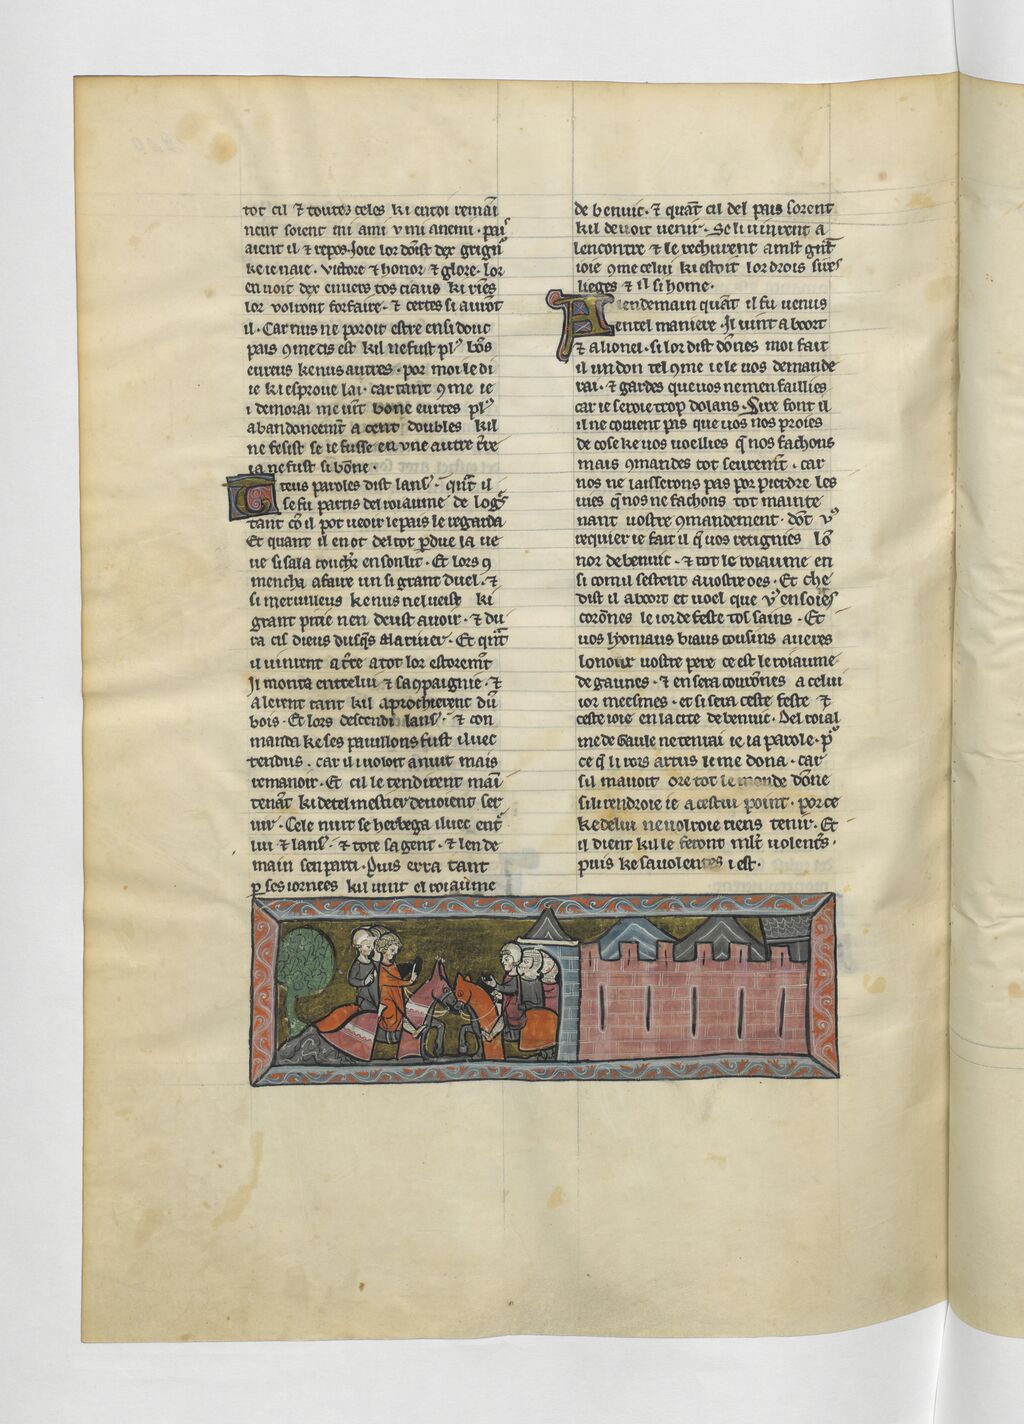 tot cil ⁊ toutes celes ki en toi remai
nent soient mi ami v mi anemi · pais
aient il ⁊ repos · Joie lor doīst dex grignr̄
ke ie naie · victore ⁊ honor ⁊ glore · lor
envoit dex envers tos ciaus ki riēs
lor volront forfaire · ⁊ certes si avrōt
il · Car nus ne poroit estre en si douc
pais ꝯme cis est kil ne fust plꝰ bōs
eureus ke nus autres · por moi le di
ie ki esprove lai · car tant ꝯme ie
i demorai me vīt bone eurtes plꝰ
abandoneemt̄ a cent doubles kil
ne fesist se ie fusse en vne autre tr̄re
ia ne fust si bōne ·
Teus paroles dist lans̄ · qūt il
se fu partis del roiaume de logr̄s
tant cō il pot veoir le pais le regarda
Et quant il en ot del tot ꝑdue la ve
ue si sala couchr̄ en son lit · Et lors ꝯ
mencha a faire un si grant duel · ⁊
si mervilleus ke nus nel veist ki
grant pitie nen deust avoir · ⁊ du
ra cis dieus dusqs̄ Et qn̄t
il vinrent a tr̄re a tot lor estoremt̄
Il monta entre lui ⁊ sa ꝯpaignie · ⁊
alerent tant kil aprochierent dū
bois · Et lors descendi lans̄ · ⁊ con
manda ke ses pavillons fust illuec
tendus · car il i voloit anuit mais
remanoir · Et cil le tendirent mai
tenāt ki de tel mestier devoient ser
vir · Cele nuit se herbega illuec ent̄
lui ⁊ lans̄ · ⁊ tote sa gent · ⁊ len de
main sen parti · Puis erra tant
ꝑ ses iornees kil vint el roiaume
de benuic · ⁊ quāt cil del pais sorent
kil devoit venir · Se li vinrent a
lencontre ⁊ le rechurent a mlt̄ grāt
ioie ꝯme celui ki estoit lor drois sires
lieges ⁊ il si home ·
A lendemain quāt il fu venus
en tel maniere · Il vint a boort
⁊ a lionel · si lor dist dōnes moi fait
il un don tel ꝯme ie le vos demande
rai · ⁊ gardes que vos ne men faillies
car ie seroie trop dolans · Sire font il
il ne covient pas que vos nos proies
de cose ke vos voellies q̄ nos fachons
mais ꝯmandes tot seuremt̄ · car
nos ne laisserons pas por pierdre les
vies q̄ nos ne fachons tot mainte
nant vostre ꝯmandement · dōt vꝰ
requier ie fait il q̄ vos rechignies lō
nor de benuic · ⁊ tot le roiaume en
si comil sestent a vostre oes · Et che
dist il a boort et voel que vꝰ en soies
corōnes le ior de feste tos sains · Et
vos lyoniaus biaus cousins averes
lonour vostre pere ce est le roiaume
de gaunes · ⁊ en sera courōnes a celui
ior meesmes · et si sera ceste feste ⁊
ceste ioie en la cite de benuic · Del roial
me de Gaule ne tenrai ie ia parole · pꝰ
ce q̄ li rois artus le me dona · car
sil mavoit ore tot le monde dōne
si li rendroie ie a cestui point · por ce
ke de lui ne volroie riens tenir · Et
il dient kil le feront mlt̄ volenr̄s ·
puis ke sa volentes i est ·